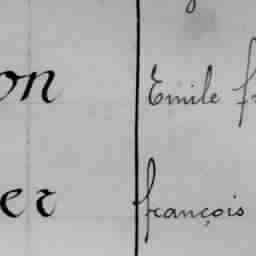 on Emile fr
er françois